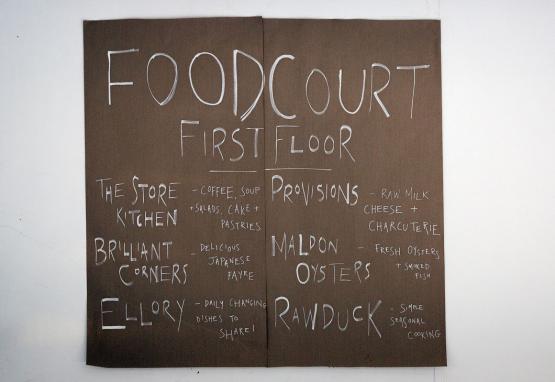 FOODCOURT
FIRST FLOOR
THE STORE KITCHEN
- COFFEE, SOUP
+ SALADS, CAKE +
PASTRIES
PROVISIONS
- RAW MILK
CHEESE +
CHARCUTERIE
BRILLIANT CORNERS
- DELICIOUS
JAPANESE
FAYRE
MALDON OYSTERS
- FRESH OYSTERS
+ SMOKED
FISH
ELLORY
- DAILY CHANGING
DISHES TO
SHARE!
RAWDUCK
- SIMPLE
SEASONAL
COOKING